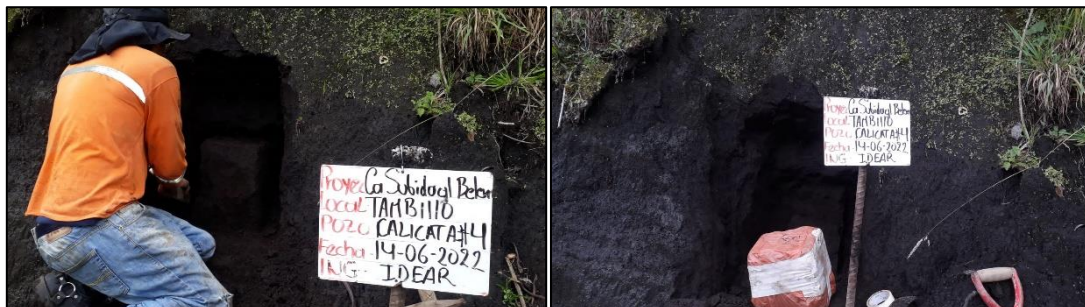 Proyec Ca Subida al Belen
Local TAMBILLO
POZO CALICATA #4
Fecha 14-06-2022
ING- IDEAR
Proyec Ca Subida al Belen
Local TAMBILLO
POZO CALICATA #4
Fecha 14-06-2022
ING IDEAR